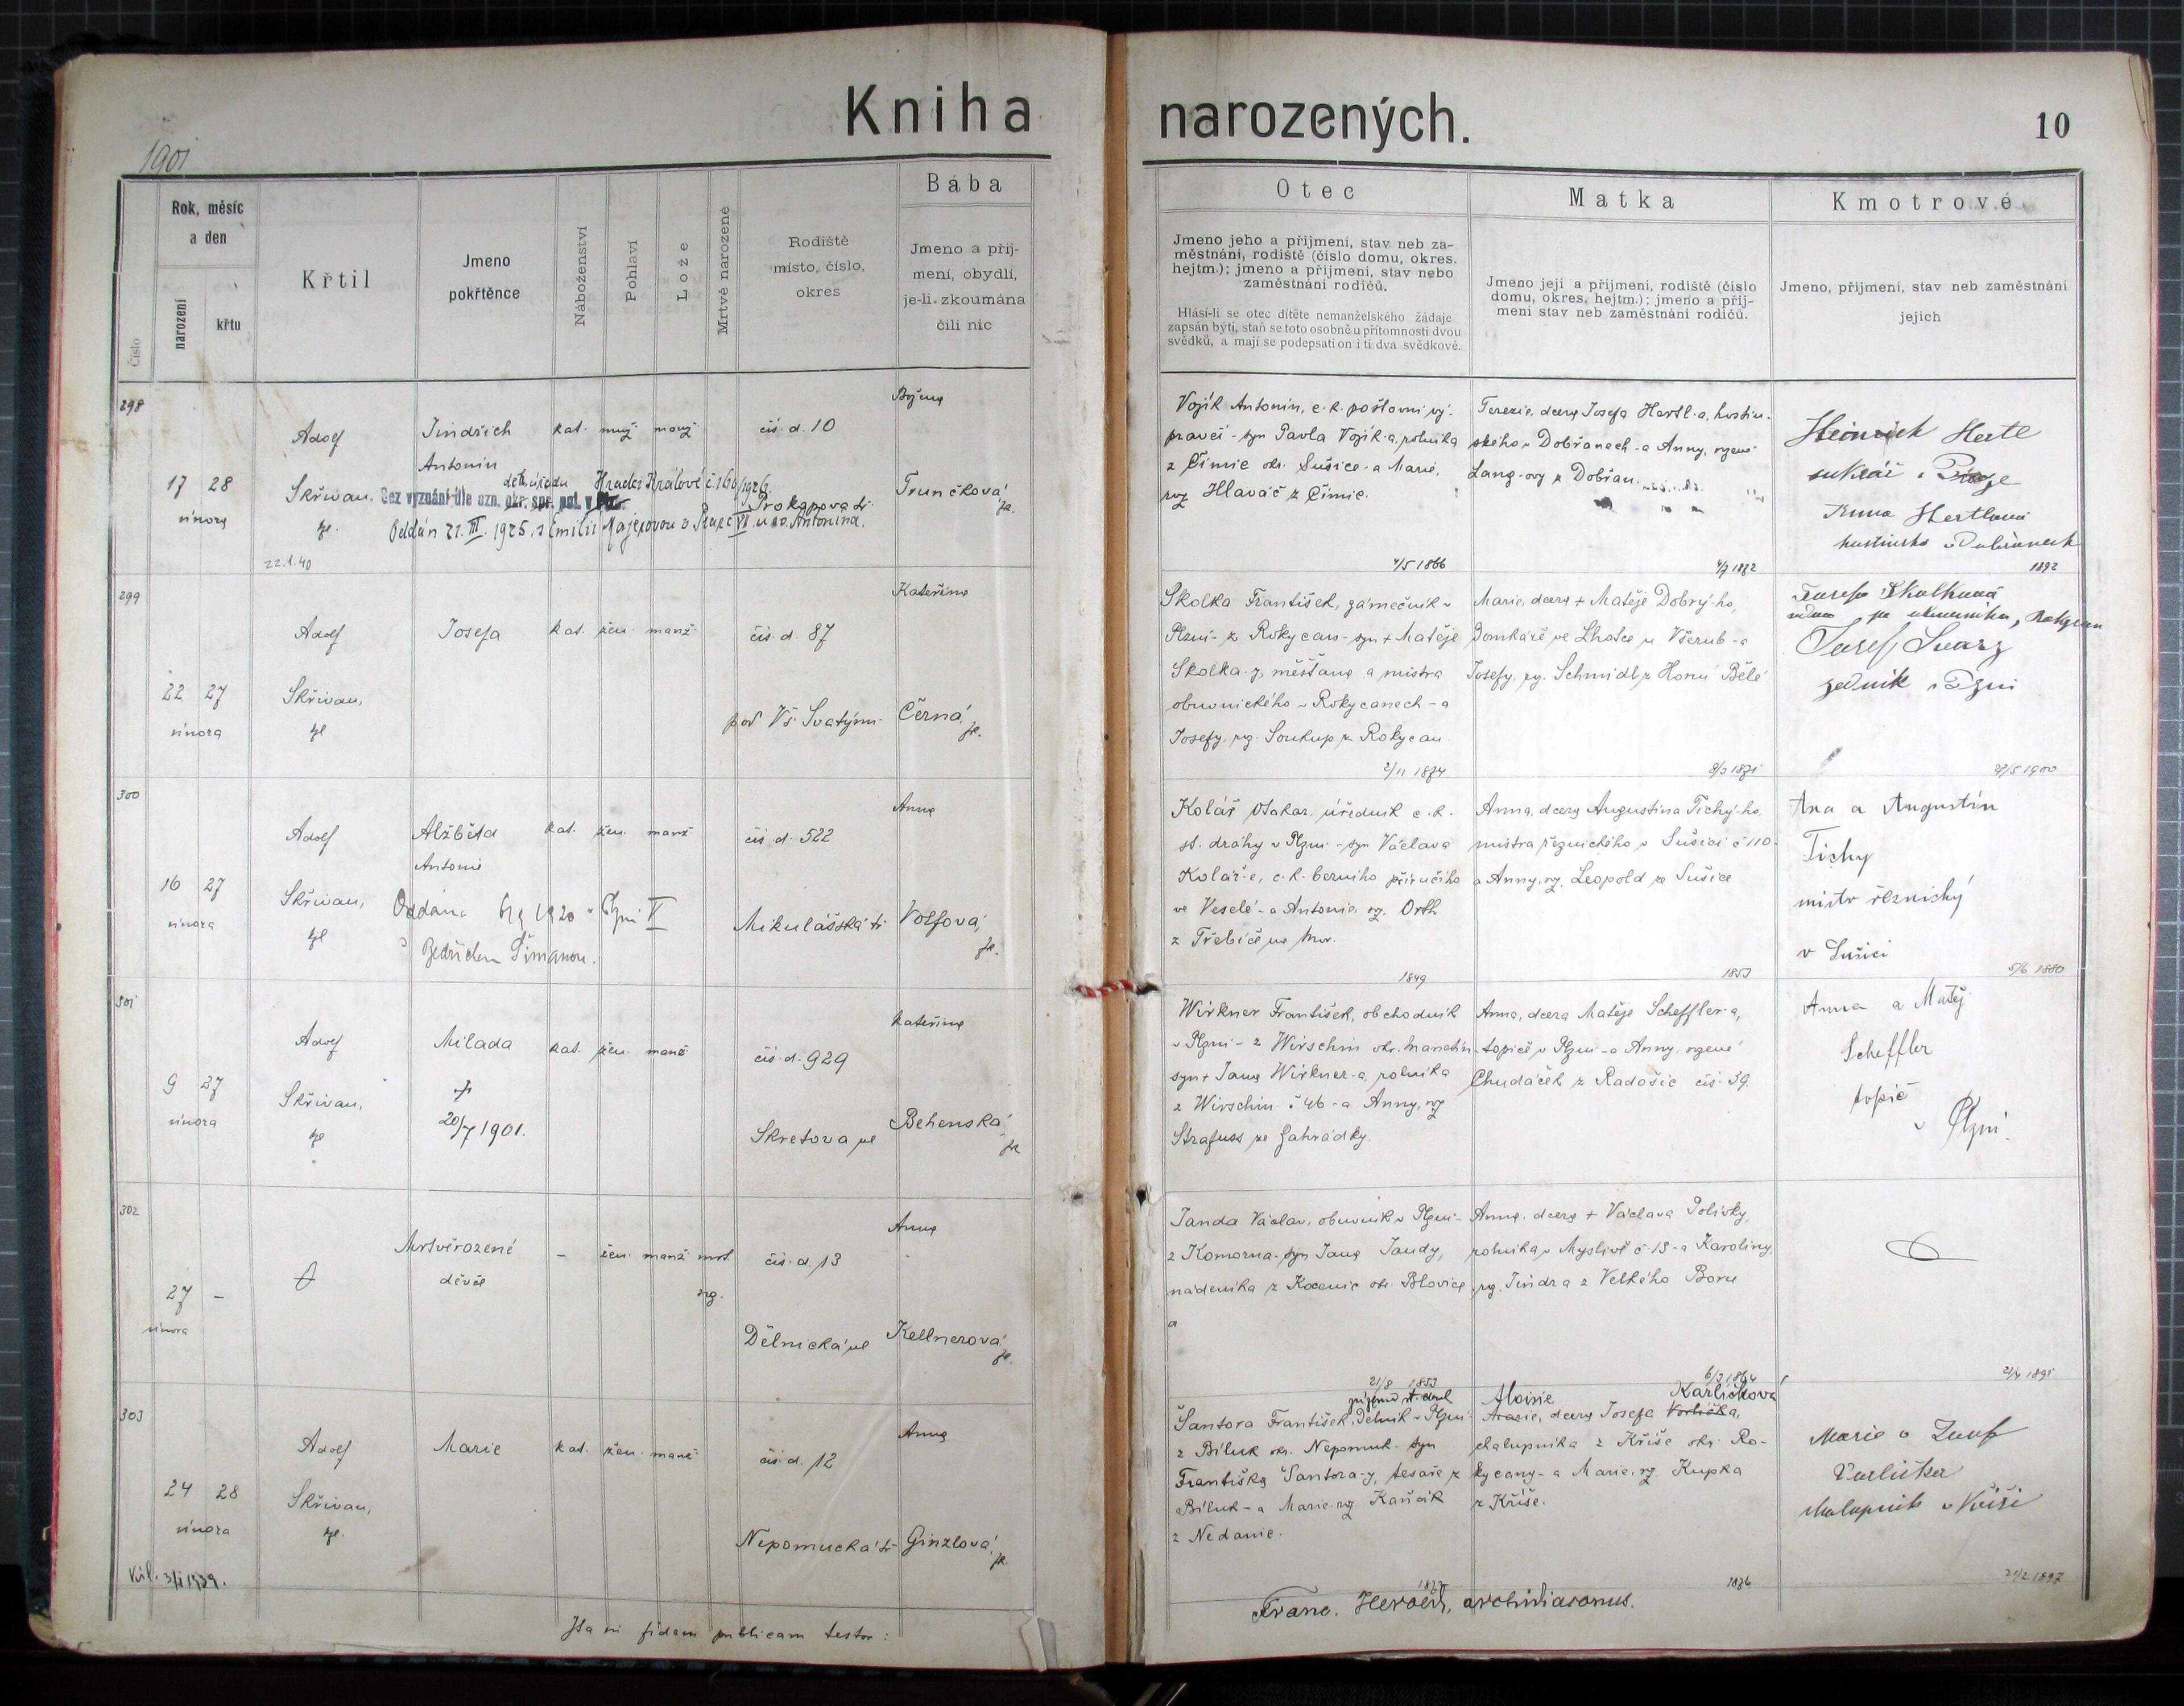 Kniha narozených.
10
1901
Číslo
Rok, měsíc
a den
narození
křtu
Křtil
Jmeno
pokřtěnce
Náboženství
Pohlaví
Lože
Mrtvě narozené
Rodiště
místo, číslo,
okres
Bába
Jmeno a přij-
mení, obydlí,
je-li zkoumána
čili nic
Otec
Jmeno jeho a přijmení, stav neb za-
městnání, rodiště (číslo domu, okres.
hejtm.); jmeno a přijmení, stav nebo
zaměstnání rodičů.
Hlásí-li se otec dítěte nemanželského žádaje
zapsán býti, staň se toto osobně u přítomnosti dvou
svědků, a mají se podepsati on i ti dva svědkové.
Matka
Jmeno její a přijmení, rodiště (číslo
domu, okres, hejtm.); jmeno a přij-
mení stav neb zaměstnání rodičů.
Kmotrové
Jmeno, přijmení, stav neb zaměstnání
jejich
298
17 28
února
Adolf
Skřivan,
22.1.40
Jindřich
Antonín
kat. muž. manž.
čís. d. 10
Prokopova tř.
Bez vyznání dle ozn. okr. spr. pol. v
Hradci Králové č. 160/1926.
Oddán 21. III. 1925, s Emilií Majerovou v Praze VI u sv. Antonína.
Božena
Trunčková
Vojík Antonín, c. k. poštovní vý-
pravčí - syn Pavla Vojík-a, rolníka
z Čimic okr. Sušice - a Marie,
roz. Hlaváč z Čimic.
4/5 1866
Terezie, dcera Josefa Hertl-a, hostin-
ského v Dobřanech - a Anny, rozené
Lang-ovy z Dobřan.
Heinrich Hertl
Anna Hertlová
hostinská v Dobřanech
1892
299
22 27
února
Adolf
Skřivan,
Josefa
kat. žen. manž.
čís. d. 87
pod Vš. Svatými
Kateřina
Černá
Skolka František, zámečník v
Plzni - z Rokycan - syn + Matěje
Skolka-y, měšťana a mistra
obuvnického v Rokycanech - a
Josefy, roz. Soukup z Rokycan.
2/11 1874
Marie, dcera + Matěje Dobrý-ho,
domkáře ve Lhotce u Všerub - a
Josefy, roz. Schmidl z Horní Bělé
Josefa Skolková
Josef Švarz
zedník v Plzni
27/5 1900
300
16 27
února
Adolf
Skřivan,
Alžběta
Antonie
kat. žen. manž
čís. d. 522
Mikulášská tř.
Oddána 1920 v Plzni V
s Bedřichem Šimanou.
Anna
Volfová
Kolář Otakar, úředník c. k.
st. dráhy v Plzni - syn Václava
Kolář-e, c. k. berního příručího
ve Veselé - a Antonie, roz. Orth
z Třebíče na Mor.
1849
Anna, dcera Augustina Tichý-ho,
mistra řeznického v Sušici č 110
a Anny, roz. Leopold ze Sušice
1853
Ana a Augustín
Tichy
mistr řeznický
v Sušici
5/6 1880
301
9 27
února
Adolf
Skřivan,
Milada
+
20/7 1901.
kat. žen. manž
čís. d. 929
Skretova ul
Kateřina
Behenská
Wirkner František, obchodník
v Plzni - z Wirschin okr. Manětín
syn + Jana Wirkner-a, rolníka
z Wirschin č 46 - a Anny, roz
Strafuss ze Zahrádky.
Anna, dcera Matěje Scheffler-a,
topiče v Plzni - a Anny, rozené
Chudáček z Radošic čís. 39.
Anna a Matěj
Scheffler
topič
v Plzni.
302
27 -
února
Mrtvěrozené
děvče
- žen. manž mrt.
čís. d. 13
Dělnická ul
Anna
Kellnerová
Janda Václav, obuvník v Plzni -
z Komorna - syn Jana Jandy,
nádeníka z Kocenic okr. Blovice
a
21/8 1853
Anna, dcera + Václava Polívky,
rolníka v Myslivě č 15 - a Karoliny
roz. Jindra z Velkého Boru
6/3 1864
21/4 1891
303
24 28
února
Adolf
Skřivan,
Marie
kat. žen. manž
čís. d. 12
Nepomucká tř
Anna
Ginzlová
Šantora František, dělník v Plzni
z Bíluk okr. Nepomuk - syn
Františka Šantora-y, tesaře z
Bíluk - a Marie roz Kaňák
z Nedanic.
Aloisie Karlíčková
Marie, dcera Josefa Vorlíčka,
chalupníka z Kříše okr. Ro-
kycany - a Marie, roz. Kupka
z Kříše.
1876
Marie a Josef
Vorlička
chalupník v Kříši
21/2 1897
Ita in fidem publicam testor:
Franc. Herold, archidiaconus.